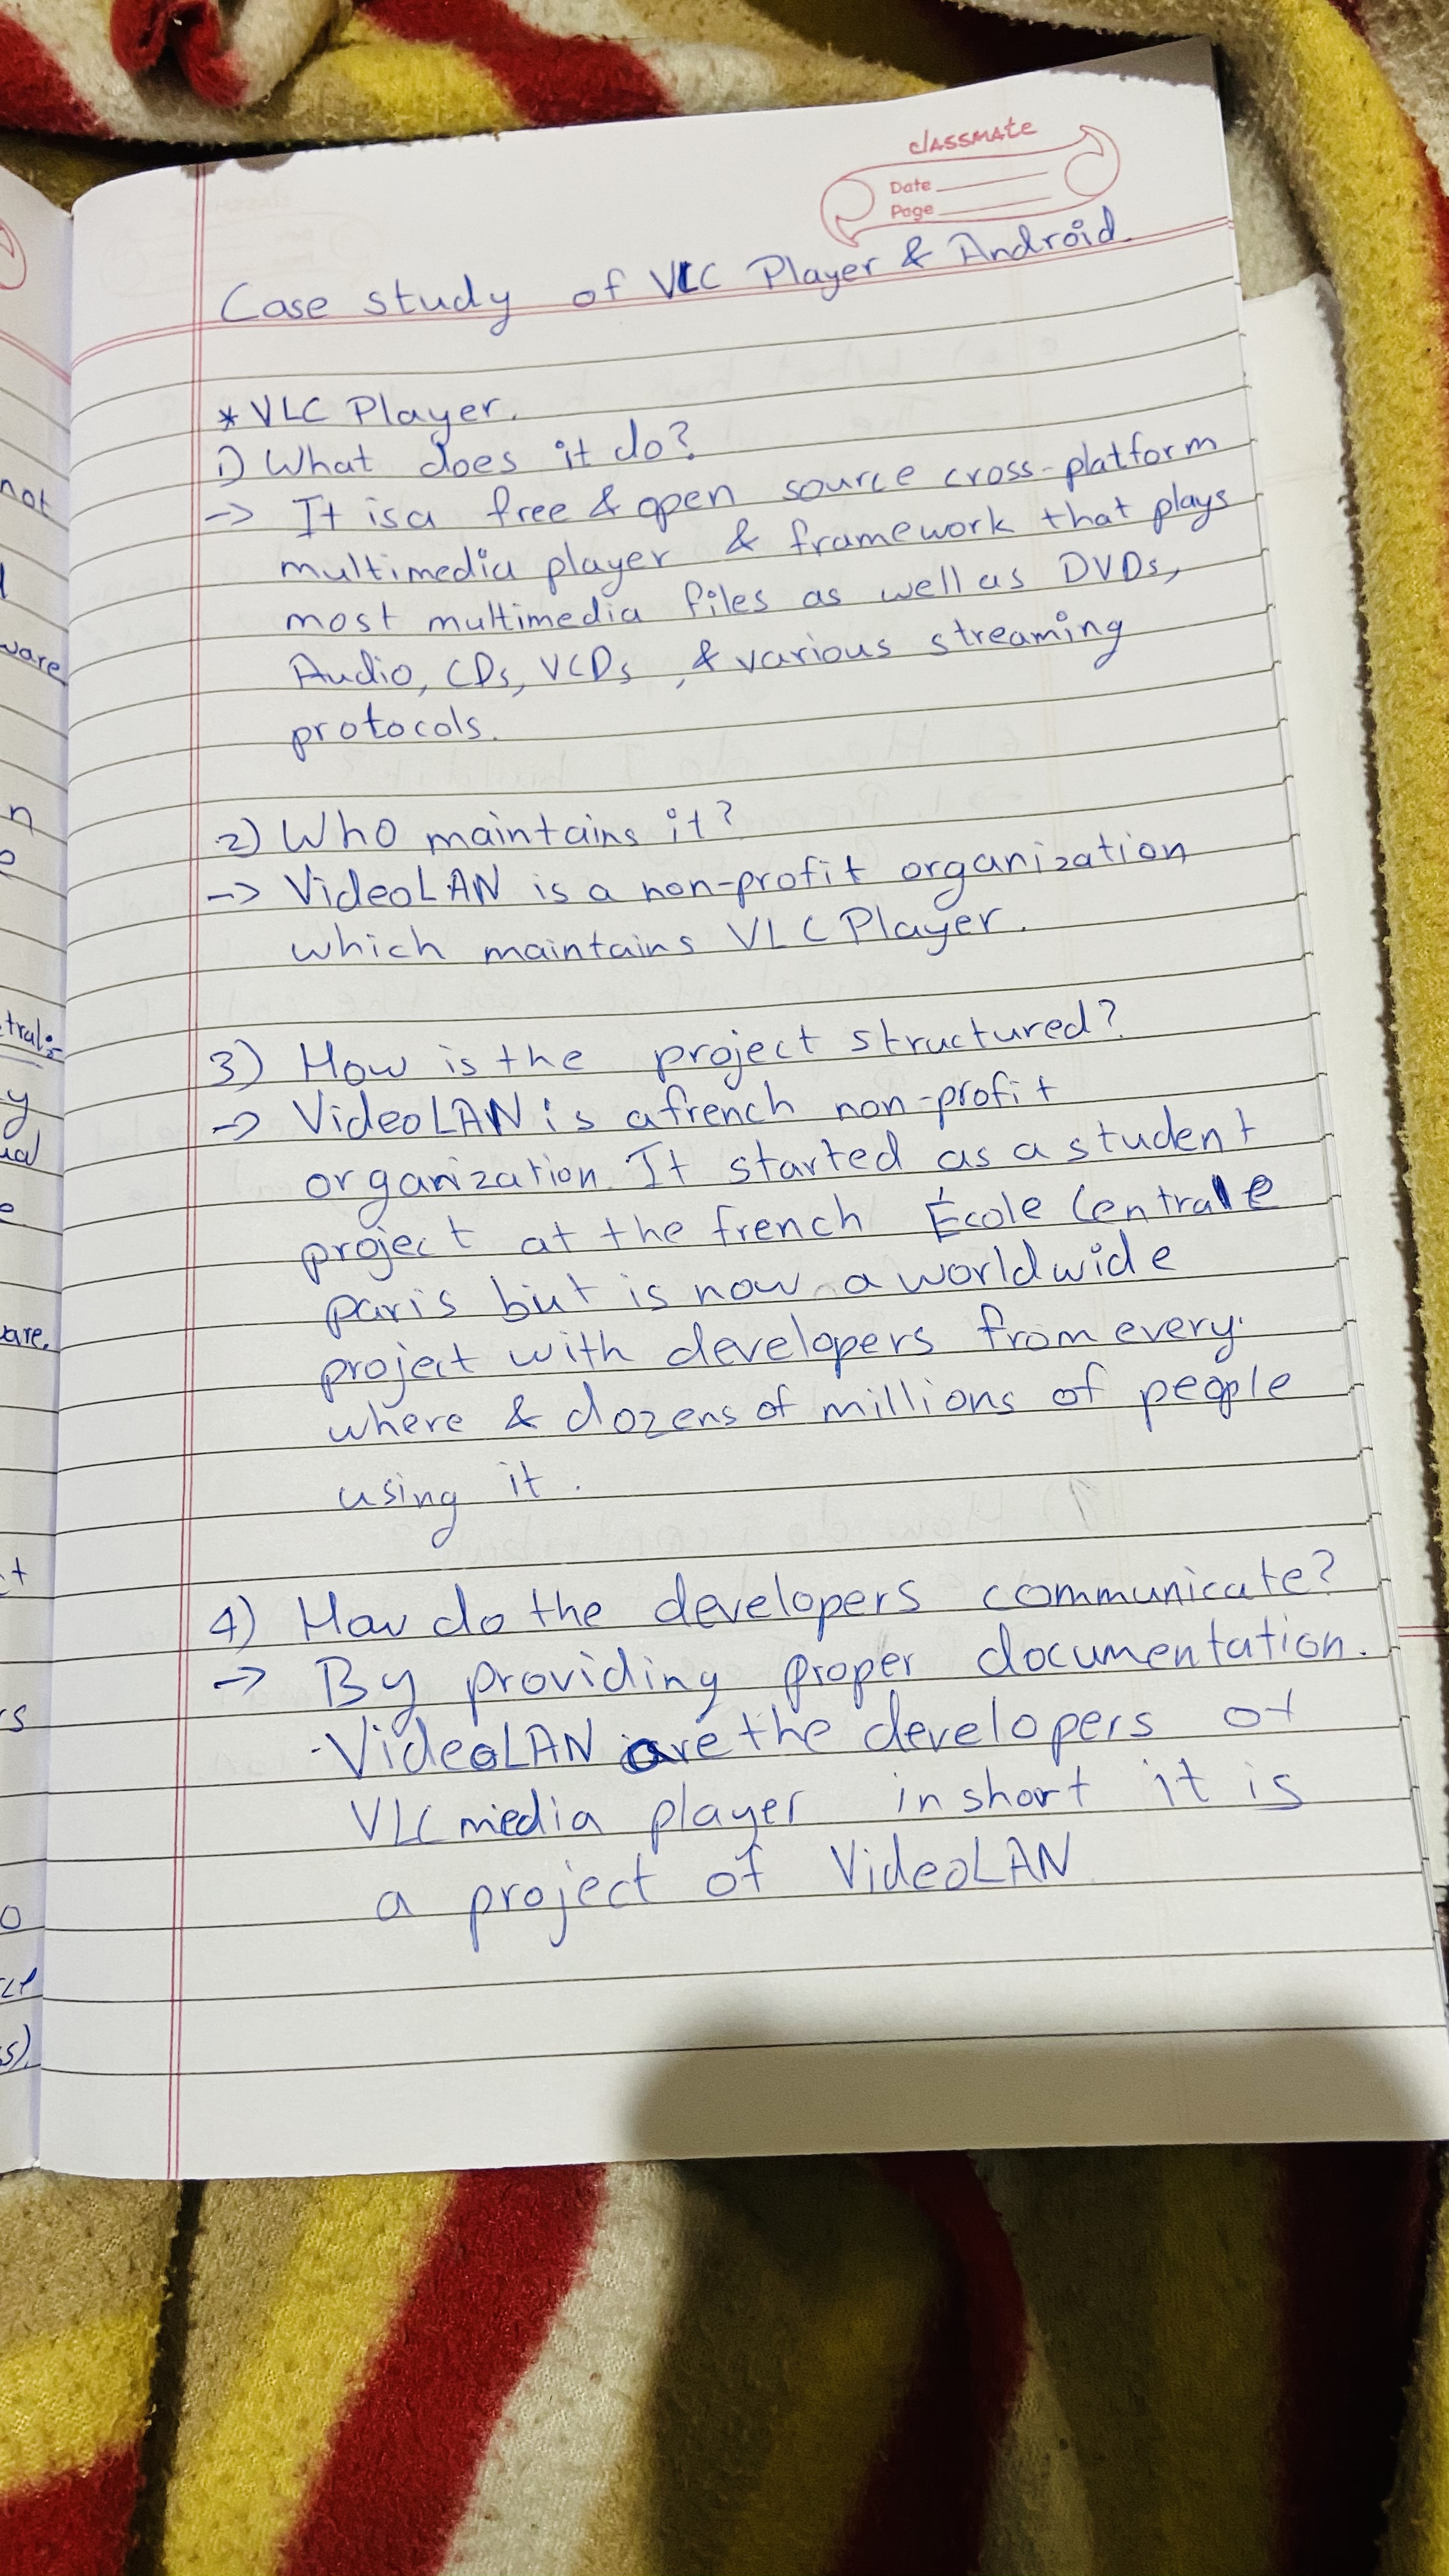 classmate
Date
Page
Case study of VLC Player & Android.
* VLC Player.
1) What does it do?
-> It is a free & open source cross-platform
multimedia player & framework that plays
most multimedia files as well as DVDs,
Audio, CDs, VCDs, & various streaming
protocols.
2) Who maintains it?
-> VideoLAN is a non-profit organization
which maintains VLC Player.
3) How is the project structured?
-> VideoLAN is a french non-profit
organization. It started as a student
project at the french École Centrale
paris but is now a worldwide
project with developers from every
where & dozens of millions of people
using it.
4) How do the developers communicate?
-> By providing proper documentation.
VideoLAN are the developers of
VLC media player in short it is
a project of VideoLAN
not
ware
n
y
are.
s
o
s)